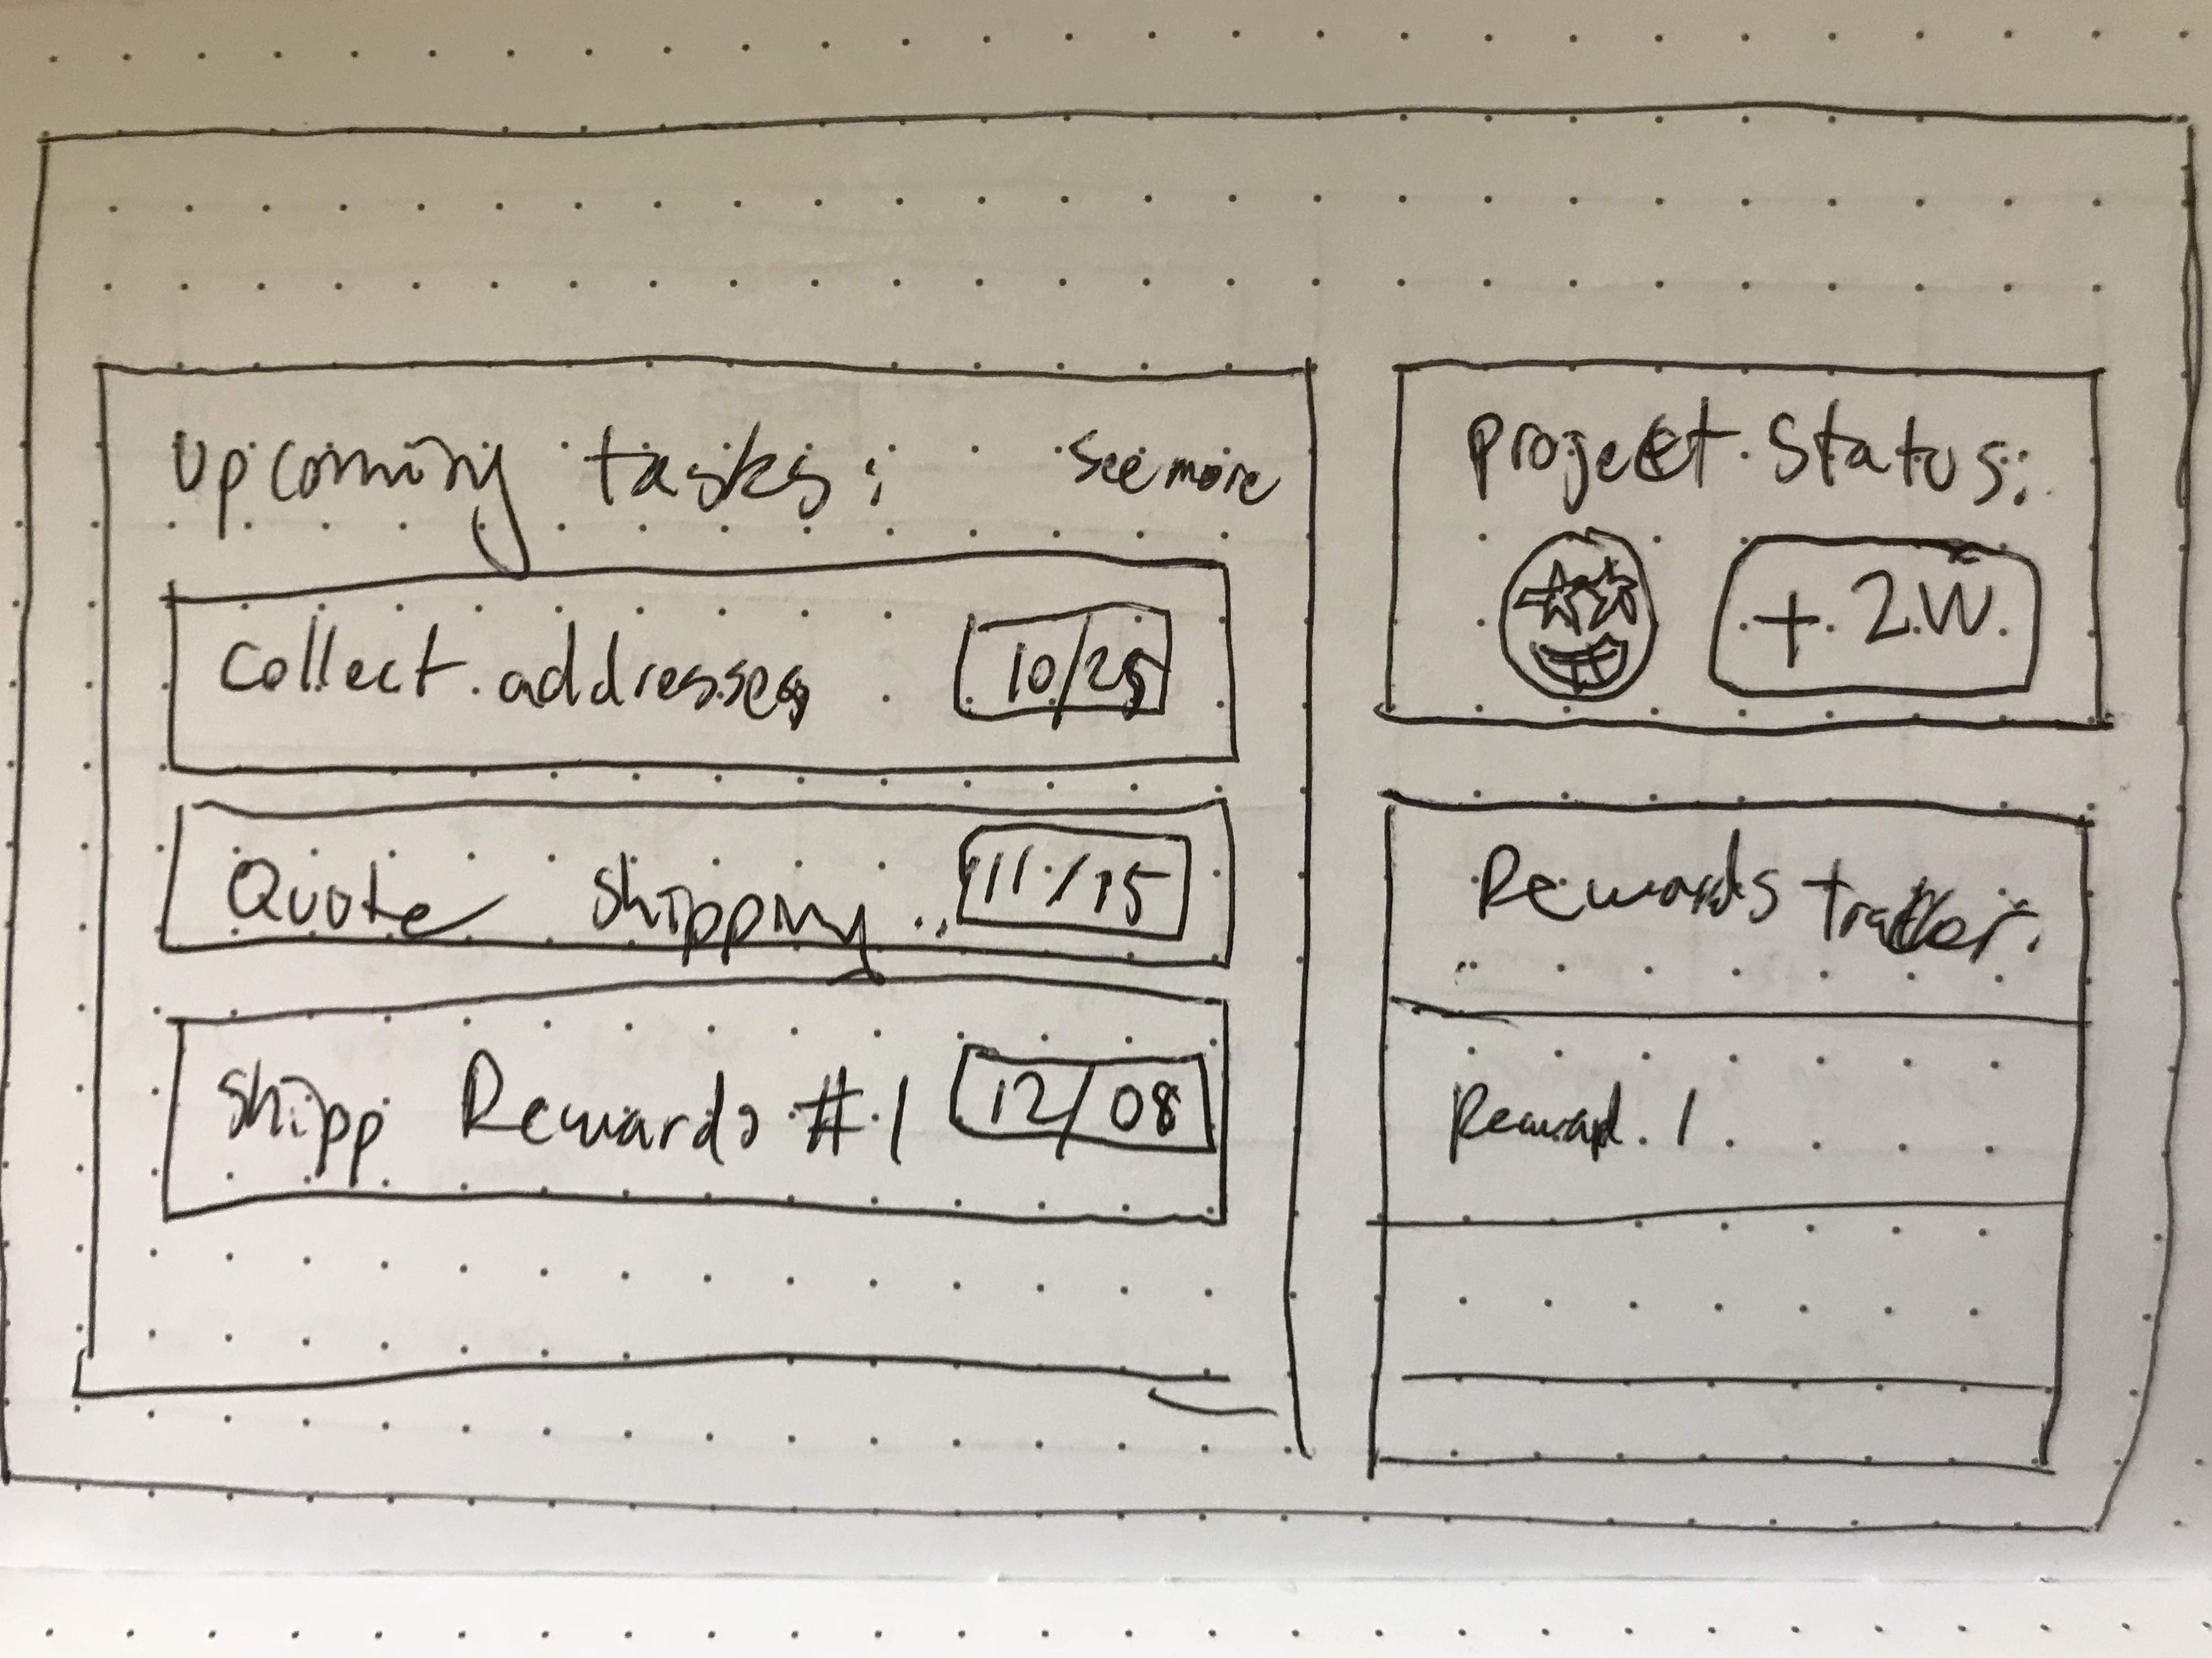 Upcoming tasks: see more
Collect addresses 10/25
Quote shipping 11/15
Shipp Rewards #1 12/08
Project Status:
+ 2 W
Rewards tracker
Reward 1